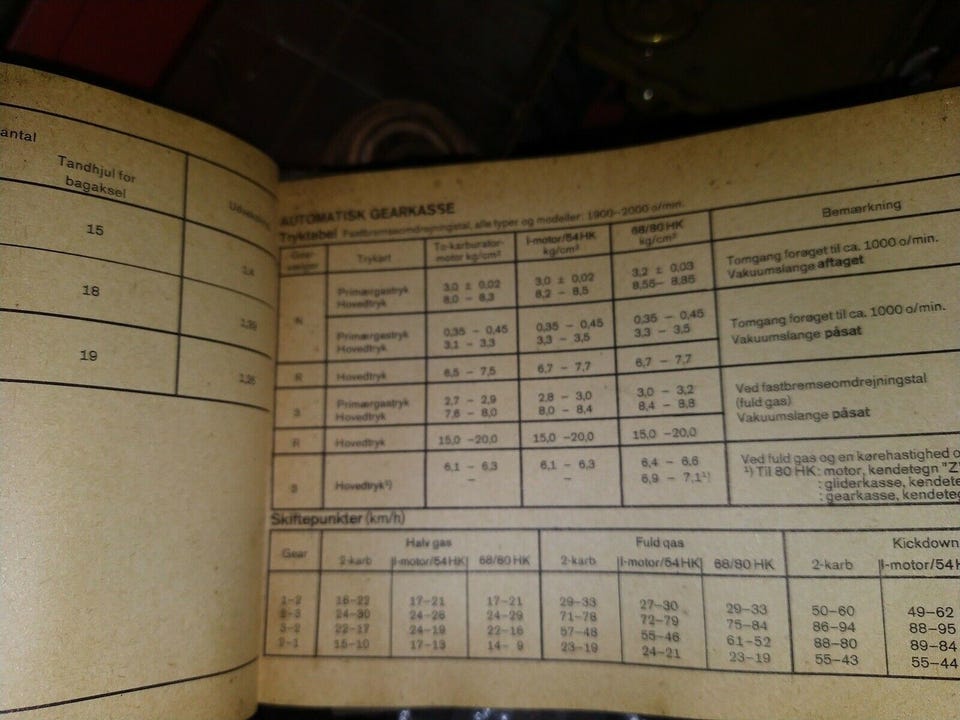 antal
Tandhjul for
bagaksel
15
18
1,39
19
1,26
AUTOMATISK GEARKASSE
Tryktabel Fastbremseomdrejningstal, alle typer og modeller: 1900–2000 o/min.
Trykart
To-karburator-
motor kg/cm²
I-motor/54 HK
kg/cm²
68/80 HK
kg/cm²
Bemærkning
N
Primærgastryk 3,0 ± 0,02 3,0 ± 0,02 3,2 ± 0,03
Hovedtryk 8,0 – 8,3 8,2 – 8,5 8,55– 8,85
Tomgang forøget til ca. 1000 o/min.
Vakuumslange aftaget
Primærgastryk 0,35 – 0,45 0,35 – 0,45 0,35 – 0,45
Hovedtryk 3,1 – 3,3 3,3 – 3,5 3,3 – 3,5
Tomgang forøget til ca. 1000 o/min.
Vakuumslange påsat
R Hovedtryk 6,5 – 7,5 6,7 – 7,7 6,7 – 7,7
3 Primærgastryk 2,7 – 2,9 2,8 – 3,0 3,0 – 3,2
Hovedtryk 7,6 – 8,0 8,0 – 8,4 8,4 – 8,8
R Hovedtryk 15,0 –20,0 15,0 –20,0 15,0 –20,0
Ved fastbremseomdrejningstal
(fuld gas)
Vakuumslange påsat
Hovedtryk¹) 6,1 – 6,3 6,1 – 6,3 6,4 – 6,6
– – 6,9 – 7,1¹)
Ved fuld gas og en kørehastighed
¹) Til 80 HK: motor, kendetegn "Z"
: gliderkasse,
: gearkasse,
Skiftepunkter (km/h)
Gear Halv gas Fuld gas Kickdown
2-karb I-motor/54HK 68/80 HK 2-karb I-motor/54HK 68/80 HK 2-karb I-motor/54
1–2 16–22 17–21 17–21 29–33 27–30 29–33 50–60 49–62
2–3 24–30 24–28 24–29 71–78 72–79 75–84 86–94 88–95
3–2 22–17 24–19 22–16 57–48 55–46 61–52 88–80 89–84
2–1 15–10 17–13 14– 9 23–19 24–21 23–19 55–43 55–44